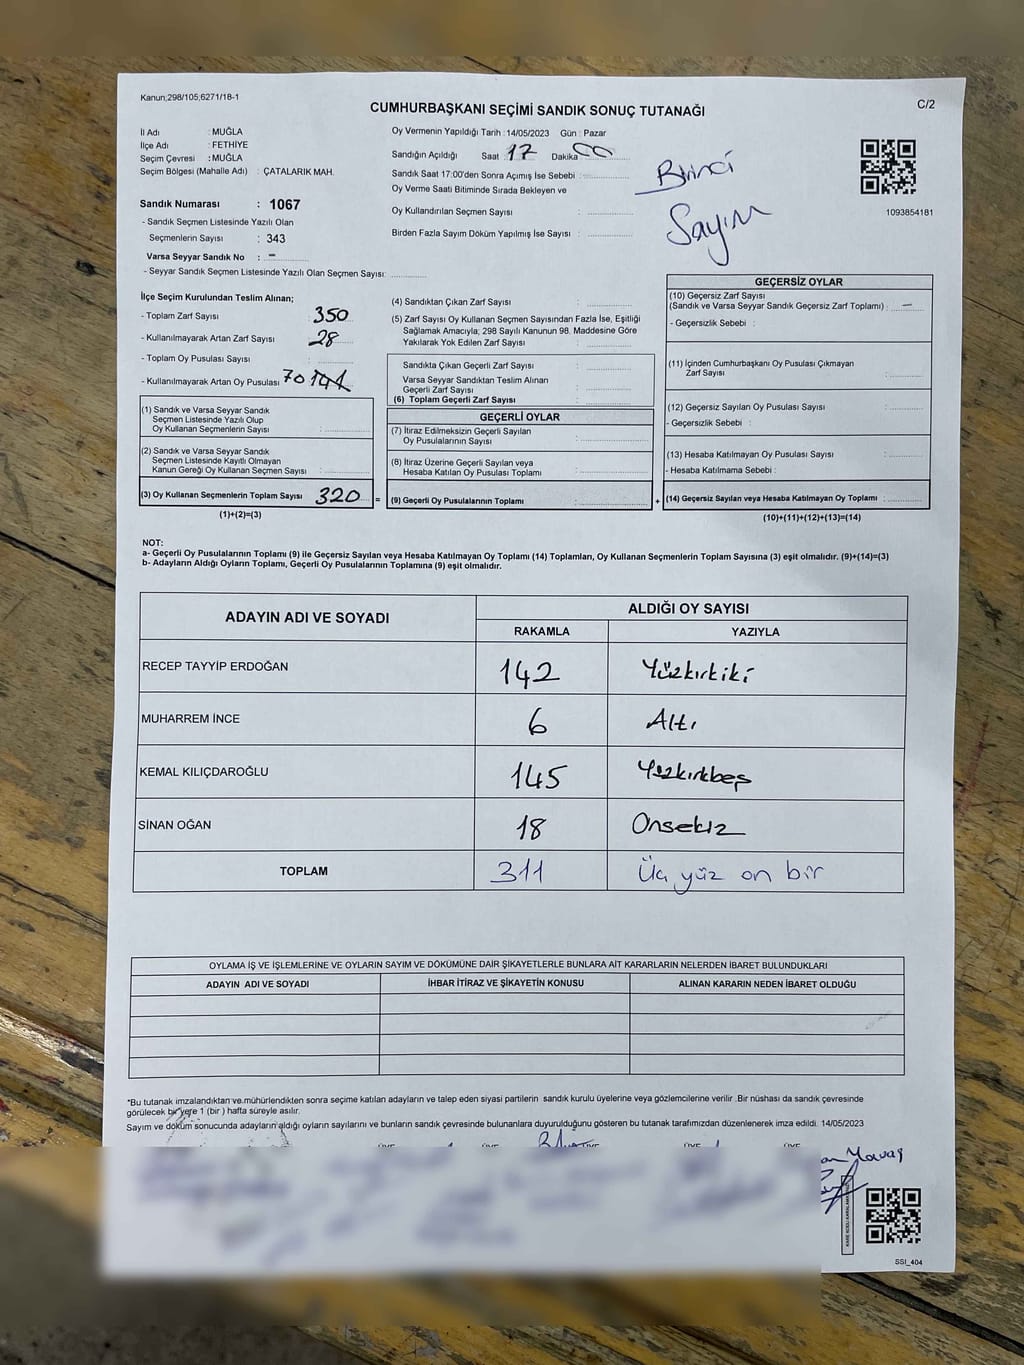 Kanun;298/105;6271/18-1
CUMHURBAŞKANI SEÇİMİ SANDIK SONUÇ TUTANAĞI
C/2
İl Adı : MUĞLA
İlçe Adı : FETHİYE
Seçim Çevresi : MUĞLA
Seçim Bölgesi (Mahalle Adı) : ÇATALARIK MAH.
Sandık Numarası : 1067
- Sandık Seçmen Listesinde Yazılı Olan
Seçmenlerin Sayısı : 343
Varsa Seyyar Sandık No : -
- Seyyar Sandık Listesinde Yazılı Olan Seçmen Sayısı:
Oy Vermenin Yapıldığı Tarih : 14/05/2023 Gün : Pazar
Sandığın Açıldığı Saat : 17 Dakika 00
Sandık Saat 17:00'den Sonra Açımış İse Sebebi :
Oy Verme Saati Bitiminde Sırada Bekleyen ve
Oy Kullandırılan Seçmen Sayısı :
Birden Fazla Sayım Döküm Yapılmış İse Sayısı :
Birinci
Sayım
1093854181
İlçe Seçim Kurulundan Teslim Alınan;
- Toplam Zarf Sayısı : 350
- Kullanılmayarak Artan Zarf Sayısı : 28
- Toplam Oy Pusulası Sayısı :
- Kullanılmayarak Artan Oy Pusulası : 70
(1) Sandık ve Varsa Seyyar Sandık
Seçmen Listesinde Yazılı Olup
Oy Kullanan Seçmenlerin Sayısı :
(2) Sandık ve Varsa Seyyar Sandık
Seçmen Listesinde Kayıtlı Olmayan
Kanun Gereği Oy Kullanan Seçmen Sayısı :
(3) Oy Kullanan Seçmenlerin Toplam Sayısı 320 =
(1)+(2)=(3)
(4) Sandıktan Çıkan Zarf Sayısı :
(5) Zarf Sayısı Oy Kullanan Seçmen Sayısından Fazla İse, Eşitliği
Sağlamak Amacıyla; 298 Sayılı Kanunun 98. Maddesine Göre
Yakılarak Yok Edilen Zarf Sayısı :
Sandıkta Çıkan Geçerli Zarf Sayısı :
Varsa Seyyar Sandıktan Teslim Alınan
Geçerli Zarf Sayısı :
(6) Toplam Geçerli Zarf Sayısı :
GEÇERLİ OYLAR
(7) İtiraz Edilmeksizin Geçerli Sayılan
Oy Pusulalarının Sayısı :
(8) İtiraz Üzerine Geçerli Sayılan veya
Hesaba Katılan Oy Pusulası Toplamı :
(9) Geçerli Oy Pusulalarının Toplamı : +
GEÇERSİZ OYLAR
(10) Geçersiz Zarf Sayısı
(Sandık ve Varsa Seyyar Sandık Geçersiz Zarf Toplamı) : -
- Geçersizlik Sebebi :
(11) İçinden Cumhurbaşkanı Oy Pusulası Çıkmayan
Zarf Sayısı :
(12) Geçersiz Sayılan Oy Pusulası Sayısı :
- Geçersizlik Sebebi :
(13) Hesaba Katılmayan Oy Pusulası Sayısı :
- Hesaba Katılmama Sebebi :
(14) Geçersiz Sayılan veya Hesaba Katılmayan Oy Toplamı :
(10)+(11)+(12)+(13)=(14)
NOT:
a- Geçerli Oy Pusulalarının Toplamı (9) ile Geçersiz Sayılan veya Hesaba Katılmayan Oy Toplamı (14) Toplamları, Oy Kullanan Seçmenlerin Toplam Sayısına (3) eşit olmalıdır. (9)+(14)=(3)
b- Adayların Aldığı Oyların Toplamı, Geçerli Oy Pusulalarının Toplamına (9) eşit olmalıdır.
ADAYIN ADI VE SOYADI ALDIĞI OY SAYISI
RAKAMLA YAZIYLA
RECEP TAYYİP ERDOĞAN 142 Yüzkırkiki
MUHARREM İNCE 6 Altı
KEMAL KILIÇDAROĞLU 145 Yüzkırkbeş
SİNAN OĞAN 18 Onsekiz
TOPLAM 311 Üç yüz on bir
OYLAMA İŞ VE İŞLEMLERİNE VE OYLARIN SAYIM VE DÖKÜMÜNE DAİR ŞİKAYETLERLE BUNLARA AİT KARARLARIN NELERDEN İBARET BULUNDUKLARI
ADAYIN ADI VE SOYADI İHBAR İTİRAZ VE ŞİKAYETİN KONUSU ALINAN KARARIN NEDEN İBARET OLDUĞU
*Bu tutanak imzalandıktan ve mühürlendikten sonra seçime katılan adayların ve talep eden siyasi partilerin sandık kurulu üyelerine veya gözlemcilerine verilir .Bir nüshası da sandık çevresinde
görülecek bir yere 1 (bir ) hafta süreyle asılır.
Sayım ve döküm sonucunda adayların aldığı oyların sayılarını ve bunların sandık çevresinde bulunanlara duyurulduğunu gösteren bu tutanak tarafımızdan düzenlenerek imza edildi. 14/05/2023
Yavaş
SSI_404